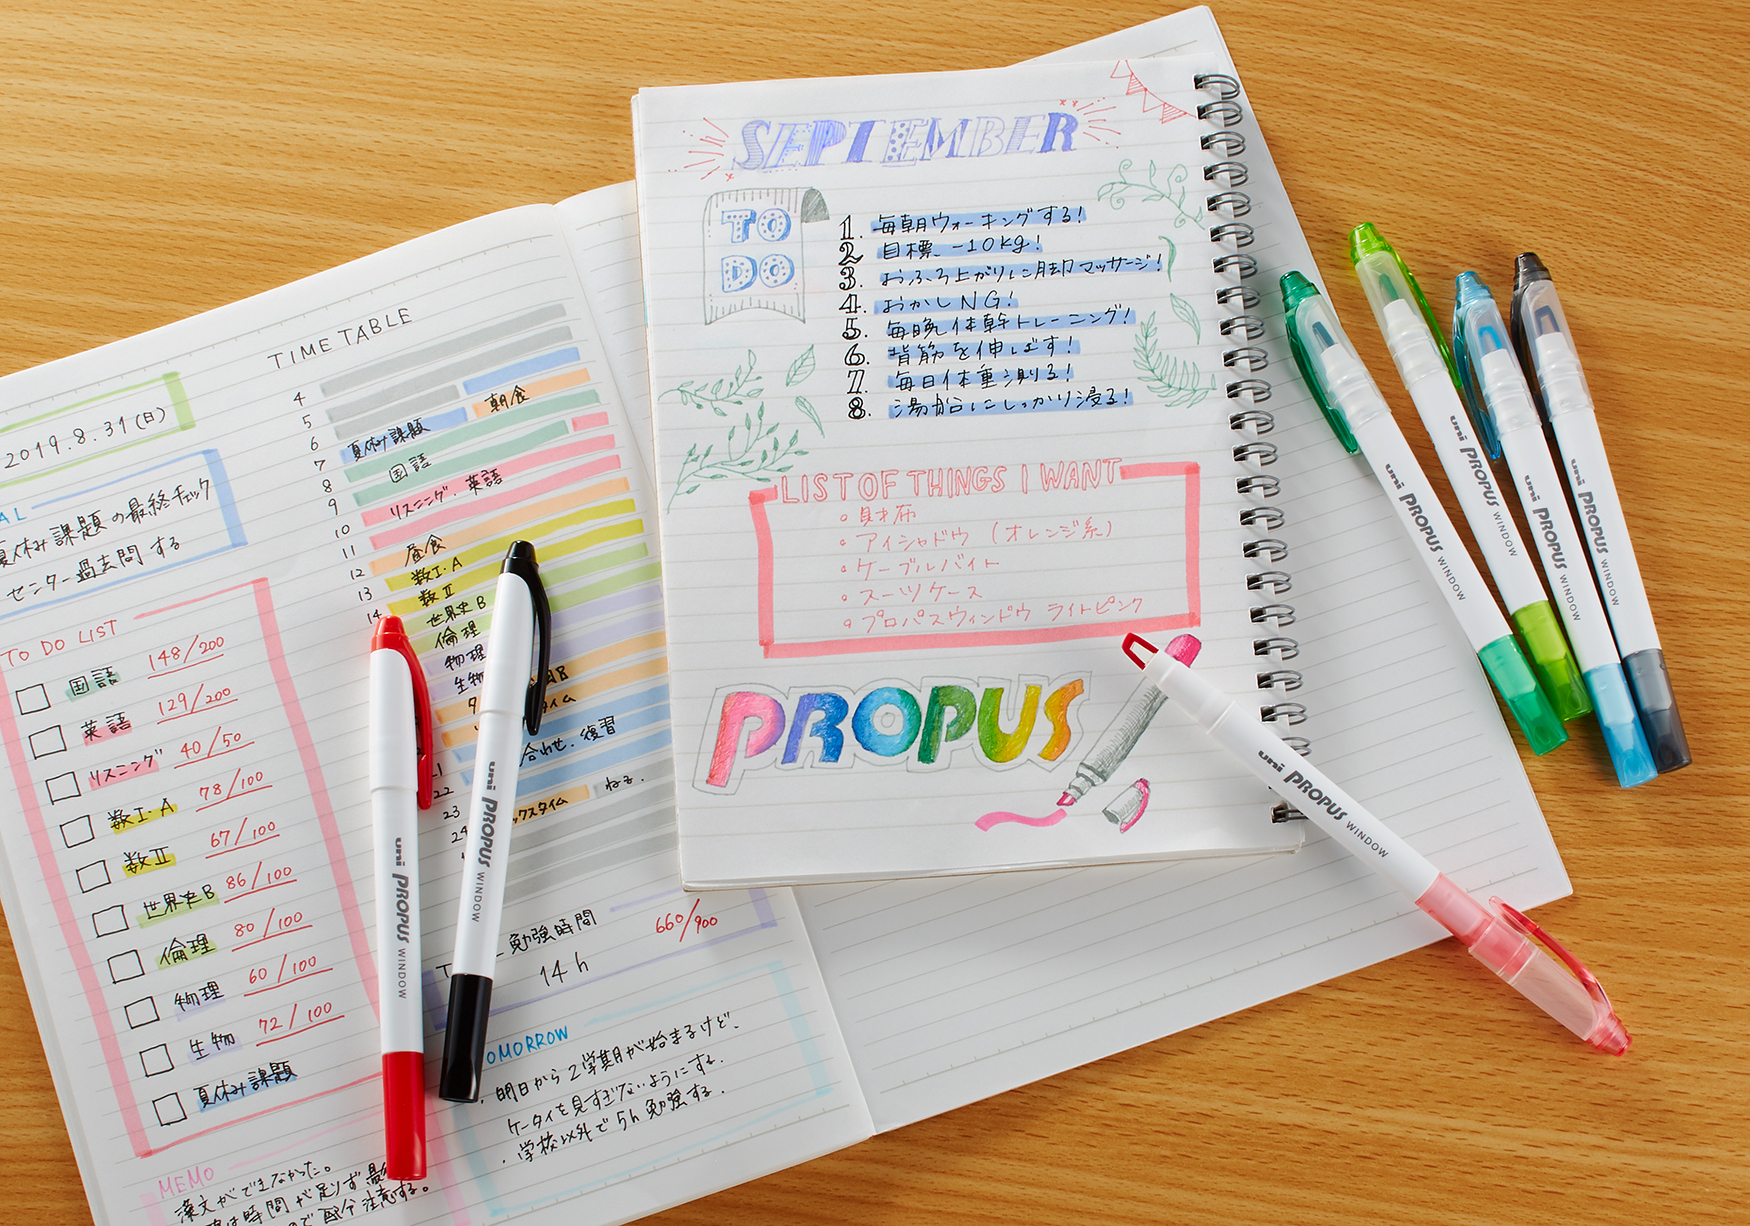 TIME TABLE
2019.8.31(日)
夏休み課題の最終チェック
センター過去問する
4
5
6
7
8
9
10
11
12
13
14
21
22
23
24
朝食
夏休み課題
国語
リスニング、英語
昼食
数I・A
数II
世界史B
倫理
物理
生物
合わせ、復習
ックスタイム
ねる.
TO DO LIST
国語 148/200
英語 129/200
リスニング 40/50
数I・A 78/100
数II 67/100
世界史B 86/100
倫理 80/100
物理 60/100
生物 72/100
夏休み課題
勉強時間 660/900
14h
OMORROW
明日から2学期が始まるけど、
ケータイを見すぎないようにする.
学校以外で5h勉強する.
MEMO
漢文ができなかった。
は時間が足りず
で配分注意する。
SEPTEMBER
TO
DO
1. 毎朝ウォーキングする!
2. 目標 -10kg!
3. おふろ上がりに脚マッサージ!
4. おかしNG!
5. 毎晩体幹トレーニング!
6. 背筋を伸ばす!
7. 毎日体重測る!
8. 湯船にしっかり浸る!
LIST OF THINGS I WANT
財布
アイシャドウ (オレンジ系)
ケーブルバイト
スーツケース
プロパスウィンドウ ライトピンク
PROPUS
uni PROPUS WINDOW
uni PROPUS WINDOW
uni PROPUS WINDOW
uni PROPUS WINDOW
uni PROPUS WINDOW
uni PROPUS WINDOW
uni PROPUS WINDOW